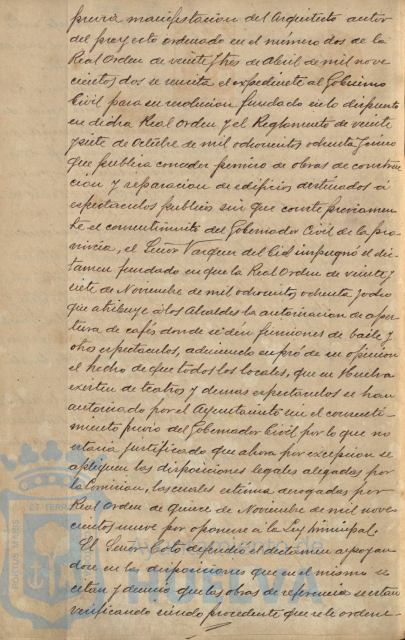 previa manifestacion del Arquitecto autor
del proyecto ordenado en el número dos de la
Real Orden de veinte y tres de Abril de mil nove
cientos dos se remita el expediente al Gobierno
Civil para su resolucion fundado en lo dispuesto
en dicha Real Orden y el Reglamento de veinte
y siete de Octubre de mil ochocientos ochenta y cinco
que prohibia conceder permiso de obras de construc
cion y reparacion de edificios destinados á
espectaculos publicos sin que conste previamen
te el consentimiento del Gobernador Civil de la pro
vincia, el Señor Vazquez del Cid impugnó el dic
tamen fundado en que la Real Orden de veinte y
siete de Noviembre de mil ochocientos ochenta y ocho
que atribuye á los Alcaldes la autorizacion de aper
tura de cafés donde se dén funciones de baile y
otros espectaculos, aduciendo en pró de su opinion
el hecho de que todos los locales, que en Huelva
existen de teatros y demas espectaculos se han
autorizado por el Ayuntamiento sin el consenti-
miento previo del Gobernador Civil por lo que no
estaria justificado que ahora por excepcion se
apliquen las disposiciones legales alegadas por
la Comision, las cuales estima derogadas por
Real Orden de quince de Noviembre de mil nove
cientos nueve por oponerse a la Ley Municipal.
El Señor Coto defendió el dictamen apoyan
dose en las disposiciones que en el mismo se
citan y denuncio que las obras de referencia se estan
verificando siendo procedente que se le ordene-
PORTUS MARIS
ET TERRAE